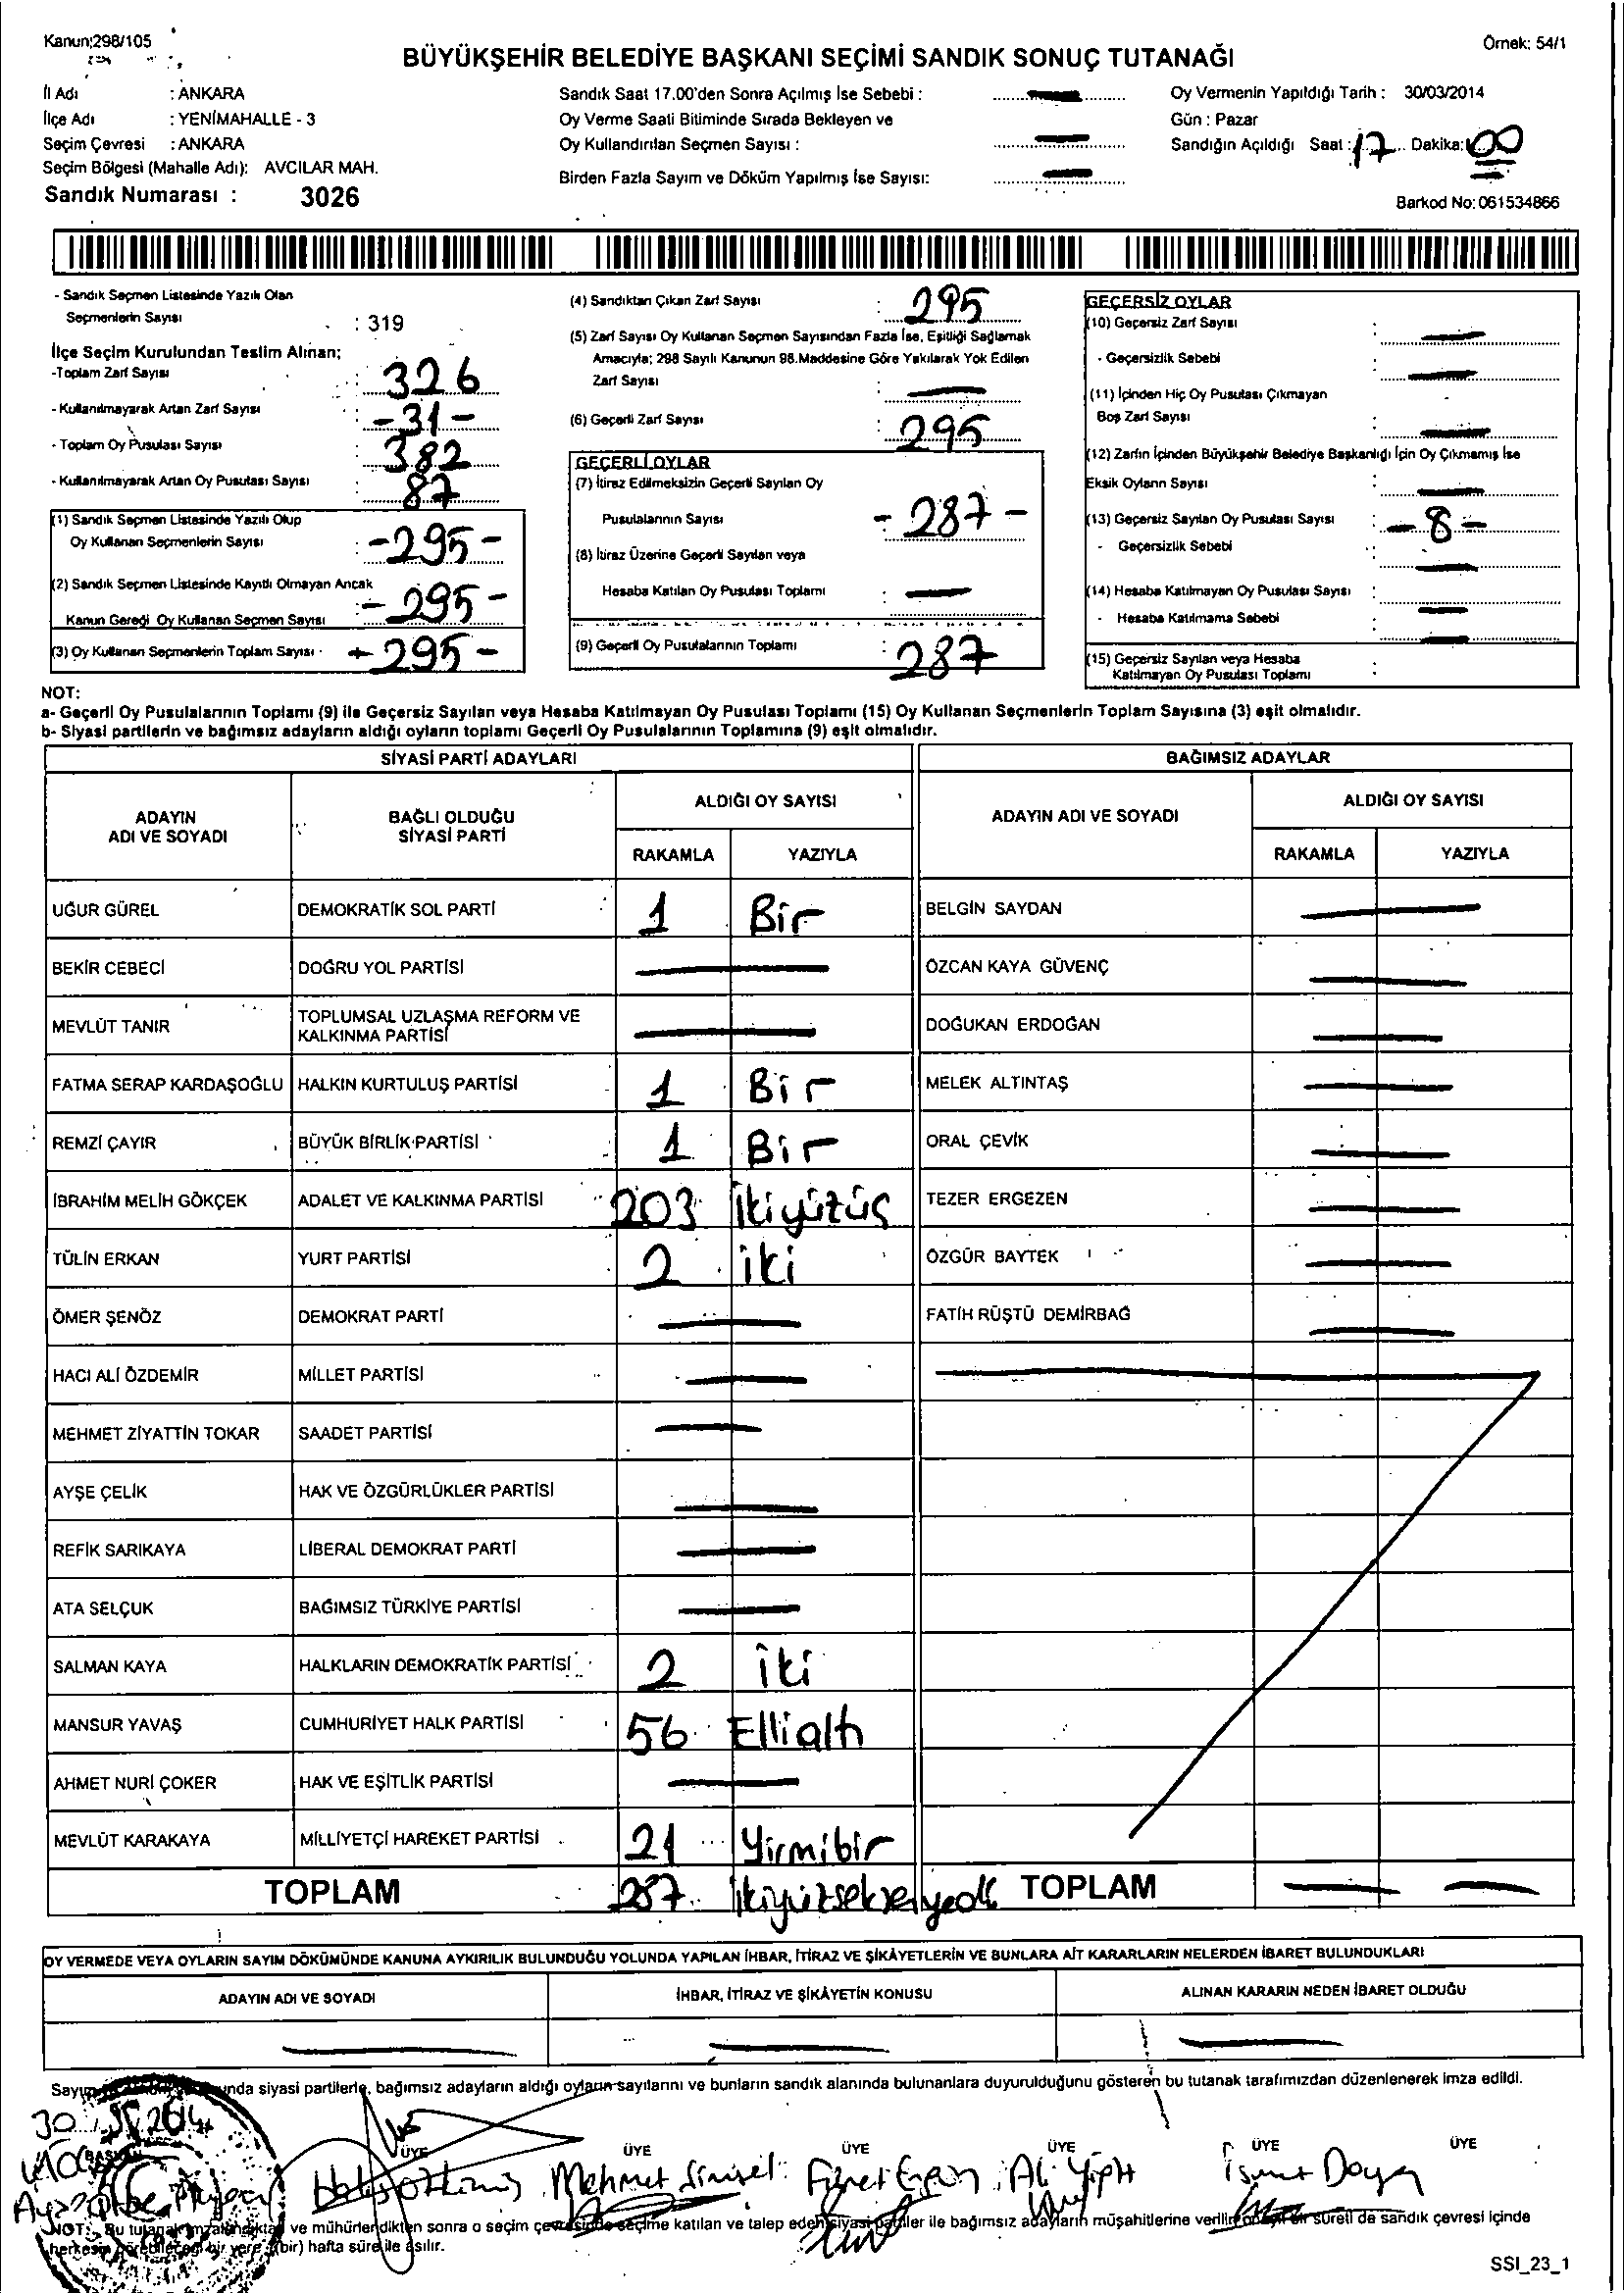 Kanun;298/105
Örnek: 54/1
BÜYÜKŞEHİR BELEDİYE BAŞKANI SEÇİMİ SANDIK SONUÇ TUTANAĞI
İl Adı : ANKARA
İlçe Adı : YENİMAHALLE - 3
Seçim Çevresi : ANKARA
Seçim Bölgesi (Mahalle Adı): AVCILAR MAH.
Sandık Numarası : 3026
Sandık Saat 17.00'den Sonra Açılmış İse Sebebi :
Oy Verme Saati Bitiminde Sırada Bekleyen ve
Oy Kullandırılan Seçmen Sayısı :
Birden Fazla Sayım ve Döküm Yapılmış İse Sayısı:
Oy Vermenin Yapıldığı Tarih : 30/03/2014
Gün : Pazar
Sandığın Açıldığı Saat : 17 Dakika: 00
Barkod No: 061534866
- Sandık Seçmen Listesinde Yazılı Olan
Seçmenlerin Sayısı : 319
İlçe Seçim Kurulundan Teslim Alınan;
-Toplam Zarf Sayısı : 326
- Kullanılmayarak Artan Zarf Sayısı : -31-
- Toplam Oy Pusulası Sayısı : 382
- Kullanılmayarak Artan Oy Pusulası Sayısı : 87
(1) Sandık Seçmen Listesinde Yazılı Olup
Oy Kullanan Seçmenlerin Sayısı : -295-
(2) Sandık Seçmen Listesinde Kayıtlı Olmayan Ancak
Kanun Gereği Oy Kullanan Seçmen Sayısı : -295-
(3) Oy Kullanan Seçmenlerin Toplam Sayısı : 295-
(4) Sandıktan Çıkan Zarf Sayısı : 295
(5) Zarf Sayısı Oy Kullanan Seçmen Sayısından Fazla İse, Eşitliği Sağlamak
Amacıyla; 298 Sayılı Kanunun 98.Maddesine Göre Yakılarak Yok Edilen
Zarf Sayısı :
(6) Geçerli Zarf Sayısı : 295
GEÇERLİ OYLAR
(7) İtiraz Edilmeksizin Geçerli Sayılan Oy
Pusulalarının Sayısı : -287-
(8) İtiraz Üzerine Geçerli Sayılan veya
Hesaba Katılan Oy Pusulası Toplamı :
(9) Geçerli Oy Pusulalarının Toplamı : 287
GEÇERSİZ OYLAR
(10) Geçersiz Zarf Sayısı :
- Geçersizlik Sebebi :
(11) İçinden Hiç Oy Pusulası Çıkmayan
Boş Zarf Sayısı :
(12) Zarfın İçinden Büyükşehir Belediye Başkanlığı İçin Oy Çıkmamış İse
Eksik Oyların Sayısı :
(13) Geçersiz Sayılan Oy Pusulası Sayısı : -8-
- Geçersizlik Sebebi :
(14) Hesaba Katılmayan Oy Pusulası Sayısı :
- Hesaba Katılmama Sebebi :
(15) Geçersiz Sayılan veya Hesaba
Katılmayan Oy Pusulası Toplamı :
NOT:
a- Geçerli Oy Pusulalarının Toplamı (9) ile Geçersiz Sayılan veya Hesaba Katılmayan Oy Pusulası Toplamı (15) Oy Kullanan Seçmenlerin Toplam Sayısına (3) eşit olmalıdır.
b- Siyasi partilerin ve bağımsız adayların aldığı oyların toplamı Geçerli Oy Pusulalarının Toplamına (9) eşit olmalıdır.
SİYASİ PARTİ ADAYLARI BAĞIMSIZ ADAYLAR
ADAYIN ADI VE SOYADI BAĞLI OLDUĞU SİYASİ PARTİ ALDIĞI OY SAYISI ADAYIN ADI VE SOYADI ALDIĞI OY SAYISI
RAKAMLA YAZIYLA RAKAMLA YAZIYLA
UĞUR GÜREL DEMOKRATİK SOL PARTİ 1 Bir BELGİN SAYDAN
BEKİR CEBECİ DOĞRU YOL PARTİSİ ÖZCAN KAYA GÜVENÇ
MEVLÜT TANIR TOPLUMSAL UZLAŞMA REFORM VE KALKINMA PARTİSİ DOĞUKAN ERDOĞAN
FATMA SERAP KARDAŞOĞLU HALKIN KURTULUŞ PARTİSİ 1 Bir MELEK ALTINTAŞ
REMZİ ÇAYIR BÜYÜK BİRLİK PARTİSİ 1 Bir ORAL ÇEVİK
İBRAHİM MELİH GÖKÇEK ADALET VE KALKINMA PARTİSİ 203 İkiyüzüç TEZER ERGEZEN
TÜLİN ERKAN YURT PARTİSİ 2 iki ÖZGÜR BAYTEK
ÖMER ŞENÖZ DEMOKRAT PARTİ FATİH RÜŞTÜ DEMİRBAĞ
HACI ALİ ÖZDEMİR MİLLET PARTİSİ
MEHMET ZİYATTİN TOKAR SAADET PARTİSİ
AYŞE ÇELİK HAK VE ÖZGÜRLÜKLER PARTİSİ
REFİK SARIKAYA LİBERAL DEMOKRAT PARTİ
ATA SELÇUK BAĞIMSIZ TÜRKİYE PARTİSİ
SALMAN KAYA HALKLARIN DEMOKRATİK PARTİSİ 2 iki
MANSUR YAVAŞ CUMHURİYET HALK PARTİSİ 56 Ellialtı
AHMET NURİ ÇOKER HAK VE EŞİTLİK PARTİSİ
MEVLÜT KARAKAYA MİLLİYETÇİ HAREKET PARTİSİ 21 Yirmibir
TOPLAM 287 İkiyüzseksenyedi TOPLAM
OY VERMEDE VEYA OYLARIN SAYIM DÖKÜMÜNDE KANUNA AYKIRILIK BULUNDUĞU YOLUNDA YAPILAN İHBAR, İTİRAZ VE ŞİKÂYETLERİN VE BUNLARA AİT KARARLARIN NELERDEN İBARET BULUNDUKLARI
ADAYIN ADI VE SOYADI İHBAR, İTİRAZ VE ŞİKÂYETİN KONUSU ALINAN KARARIN NEDEN İBARET OLDUĞU
siyasi partilerle, bağımsız adayların aldığı oyların sayılarını ve bunların sandık alanında bulunanlara duyurulduğunu gösteren bu tutanak tarafımızdan düzenlenerek imza edildi.
30 2014
BAŞKAN ÜYE ÜYE ÜYE ÜYE ÜYE ÜYE
Mehmet Ali Yiğit İsmet
NOT: Bu tutanak ve mühürlendikten sonra o seçim çevresinde seçime katılan ve talep eden siyasi partiler ile bağımsız adayların müşahitlerine verilir sureti de sandık çevresi içinde
herkesin görebileceği bir yere (bir) hafta süre ile asılır.
SSI_23_1